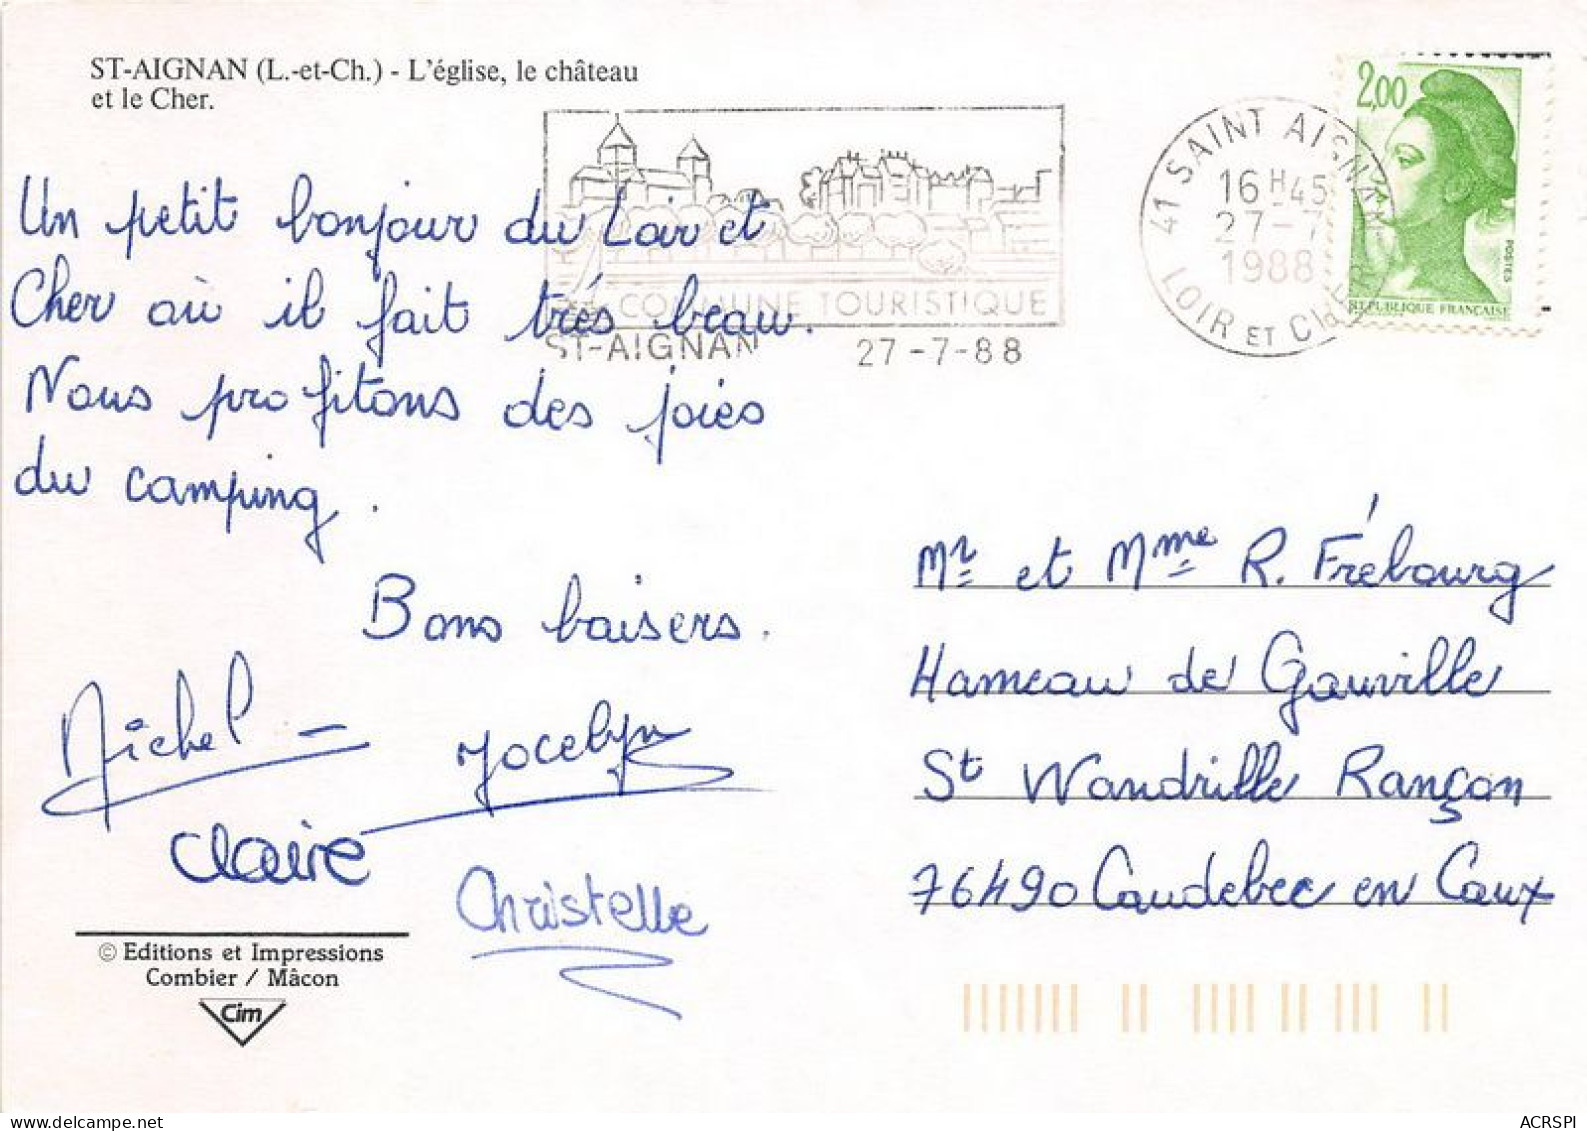 ST-AIGNAN (L.-et-Ch.) - L'église, le château
et le Cher.
COMMUNE TOURISTIQUE
ST-AIGNAN 27-7-88
41 SAINT AIGNAN
16 H 45
27-7
1988
LOIR ET CHER
2,00
POSTES
REPUBLIQUE FRANÇAISE
Un petit bonjour du Loir et
Cher où il fait très beau.
Nous profitons des joies
du camping.
Bons baisers.
Michel - Jocelyn
Claire
Christelle
Mr et Mme R. Frébourg
Hameau de Gauville
St Wandrille Rançon
76490 Caudebec en Caux
© Editions et Impressions
Combier / Mâcon
Cim
ACRSPI